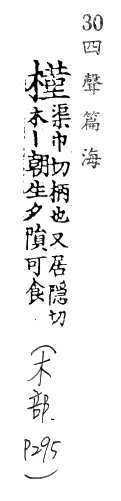 30四聲篇海
槿渠巾切柄也又居隱切
木丨朝生夕隕可食.
(木部. P295)